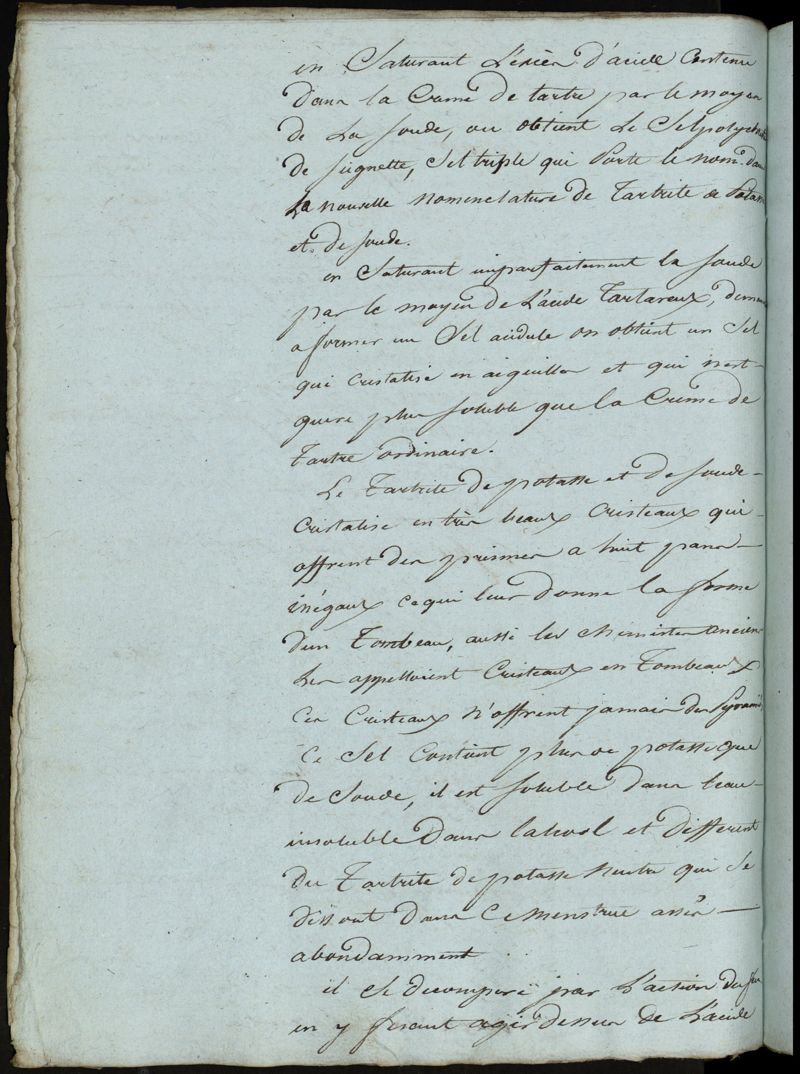 en Saturant L'exièn d'acide Contenu
dans la Crême de tartre par le moyen
de La soude, on obtient Le Sel polychr
de seignette, Sel triple qui Porte le nom dan
La nouvelle nomenclature de Tartrite de Potass
et de soude.
en Saturant imparfaitement la soude
par le moyen de L'acide Tartareux, de
a former un Sel acidule on obtient un Sel
qui cristalise en aiguilles et qui n'est-
guere plus soluble que la Crême de
Tartre ordinaire.
Le Tartrite de potasse et de soude-
Cristalise en très beaux Cristeaux qui-
offrent des prismes a huit pans-
inégaux ce qui leur donne la forme
d'un Tombeau, aussi les chimistes anciens
Les appelloient Cristeaux en Tombeaux
Ces Cristeaux n'offrent jamais de Pyrami
Ce Sel Contient plus de potasse que
de Soude, il est soluble dans leau-
insoluble dans lalcool et different
du Tartrite de potasse neutre qui Se
dissout dans Ce menstrue assés-
abondamment
il Se decompose par L'action du feu
en y fesant agir dessus de L'acide